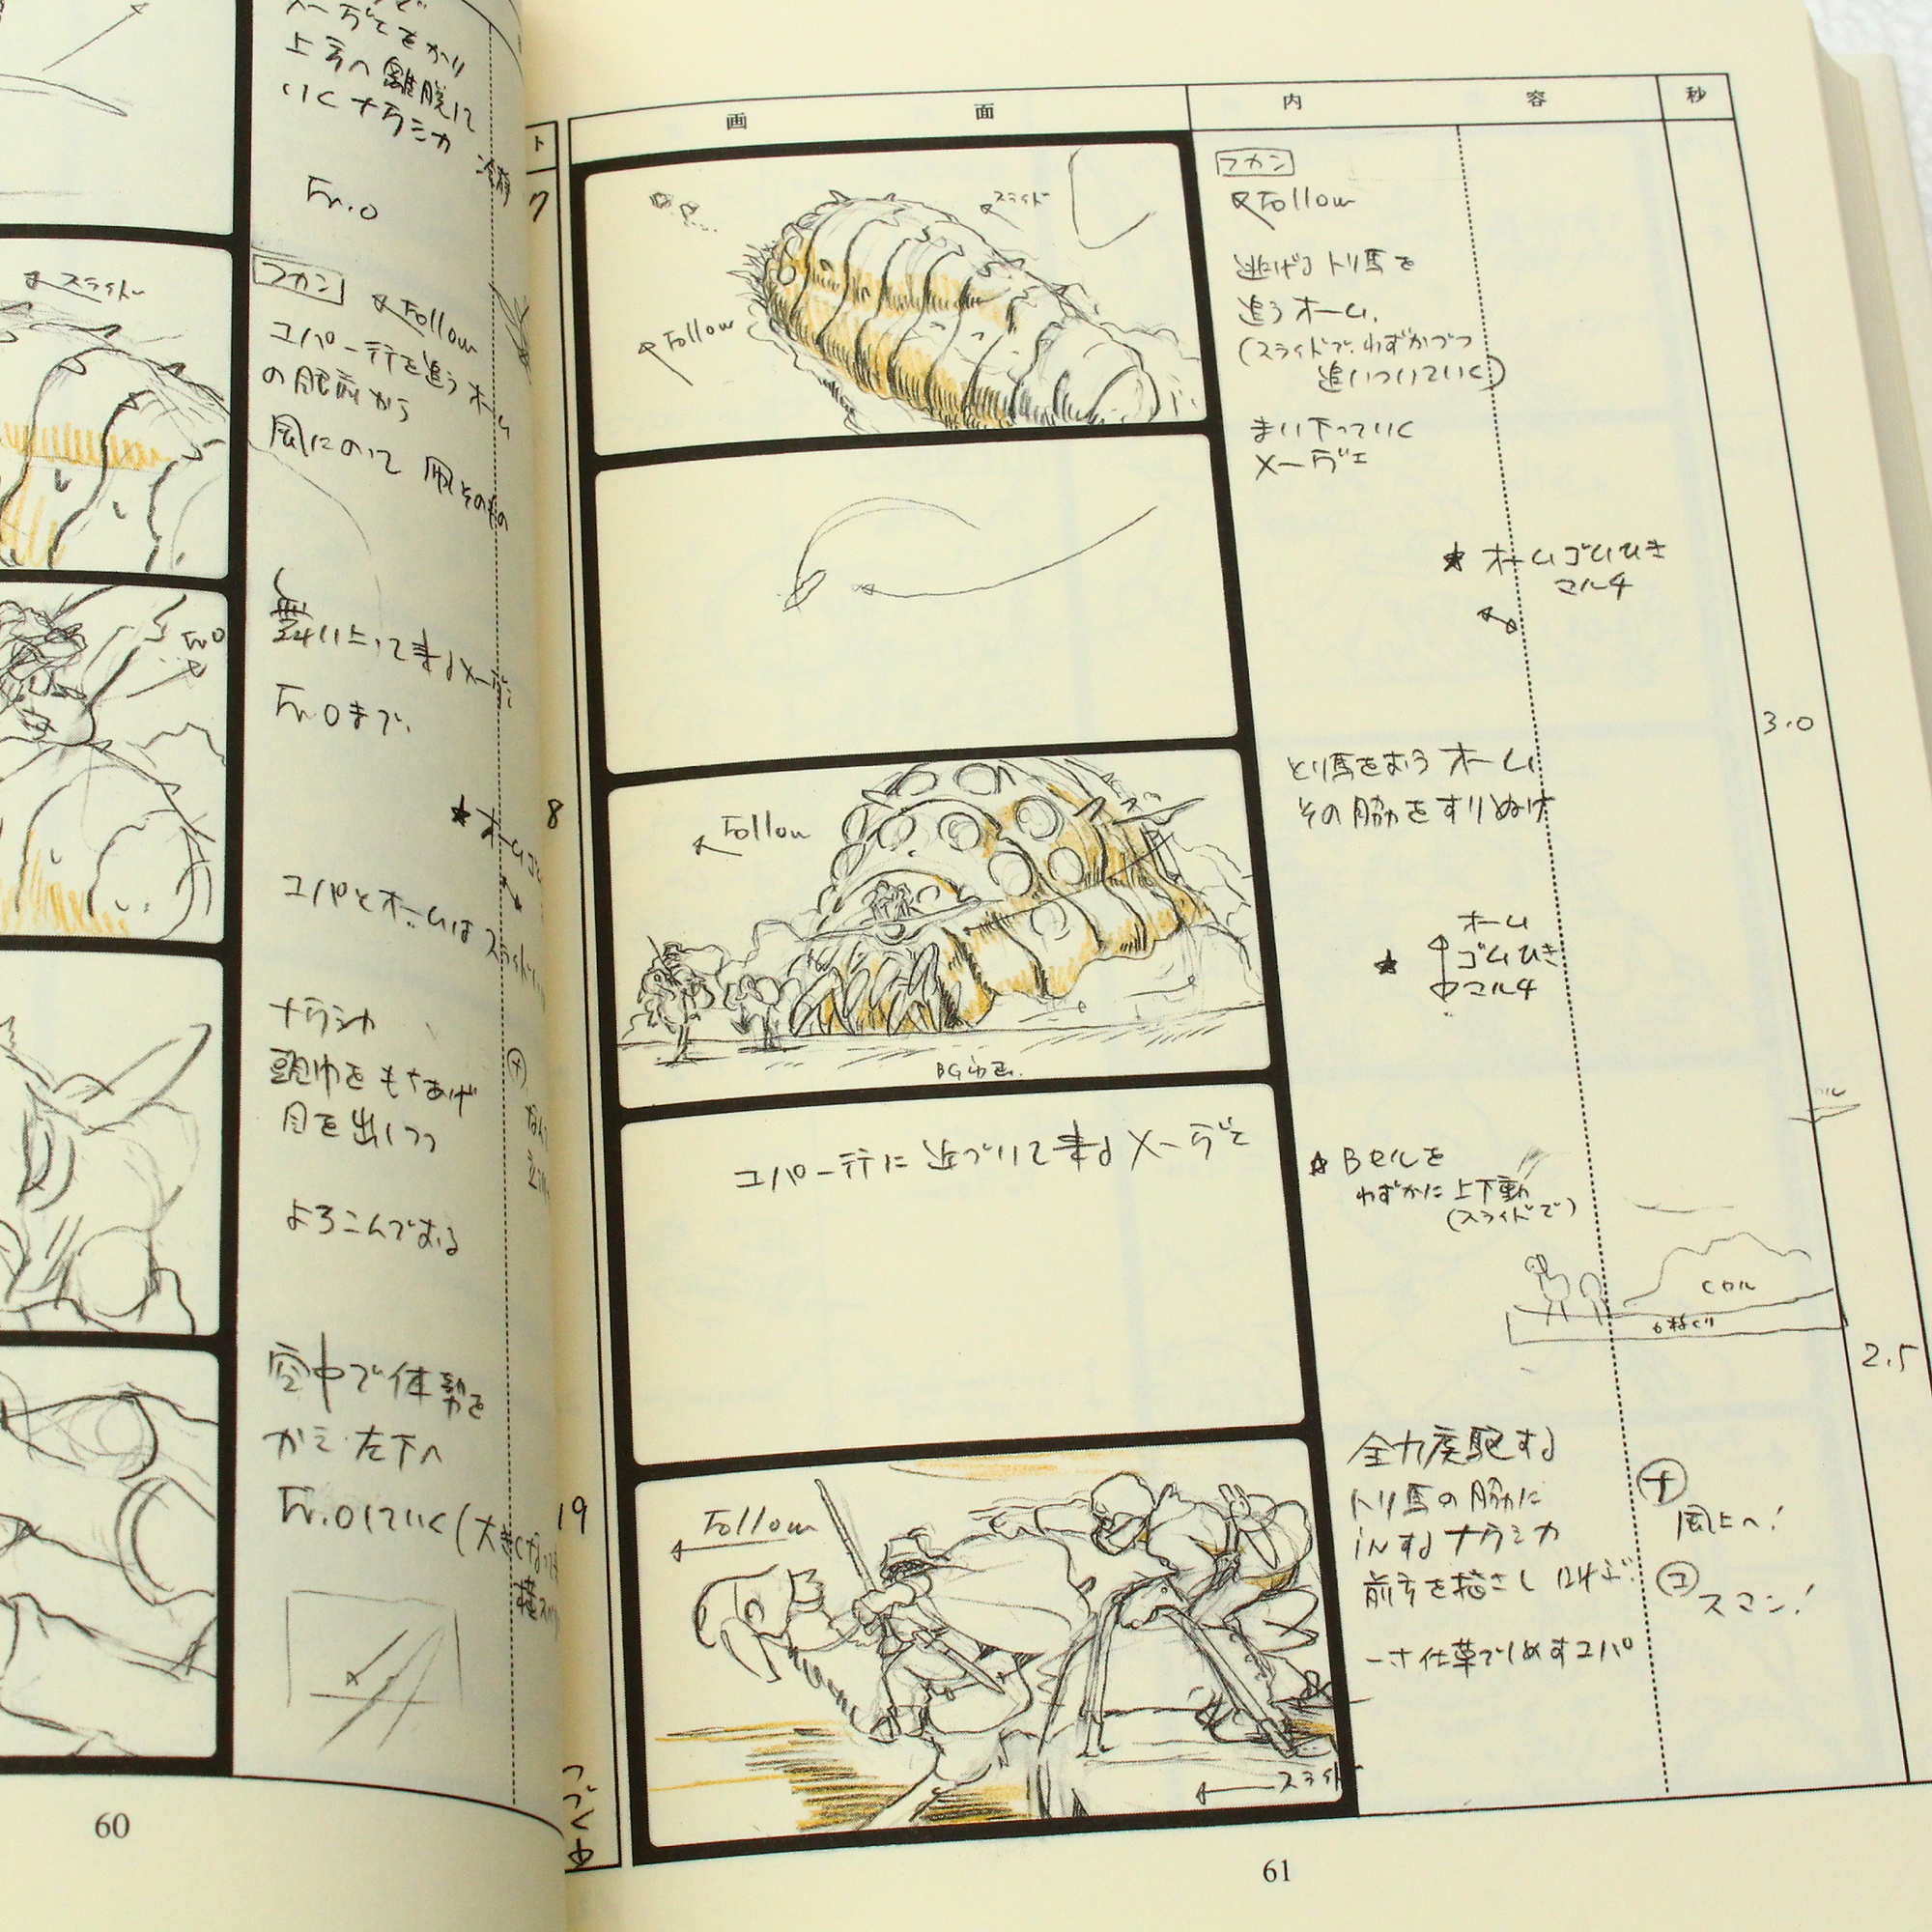 上方へ離脱して
いくナウシカ
Fr.O
スライド
フカン
Follow
ユパ一行を追うオーム
の脱前から
風にのって
舞い上って来るメーヴェ
Fr.O
Fr.Oまで.
ユパとオームはスライド
ナウシカ
頭巾をもちあげ
目を出しつつ
よろこんでおる
空中で体勢を
かえ 左下へ
Fr.Oしていく
60
ト
画面
内容
秒
7
スライド
Follow
フカン
Follow
逃げるトリ馬を
追うオーム.
(スライドで.わずかづつ
追いついていく)
まい下っていく
メーヴェ
★ オームゴムひき
マルチ
3.0
8
Follow
BG動画.
とり馬をおうオーム
その脇をすりぬけ
オーム
★ ゴムひき
マルチ
ユパ一行に近づいて来るメーヴェ
★ Bセルを
わずかに上下動
(スライドで)
Cセル
2.5
19
Follow
スライド
全力疾駆する
トリ馬の脇に
iNするナウシカ
前方を指さし叫ぶ.
一寸仕草でしめすユパ
ナ
風上へ!
ユ
スマン!
つづく
61